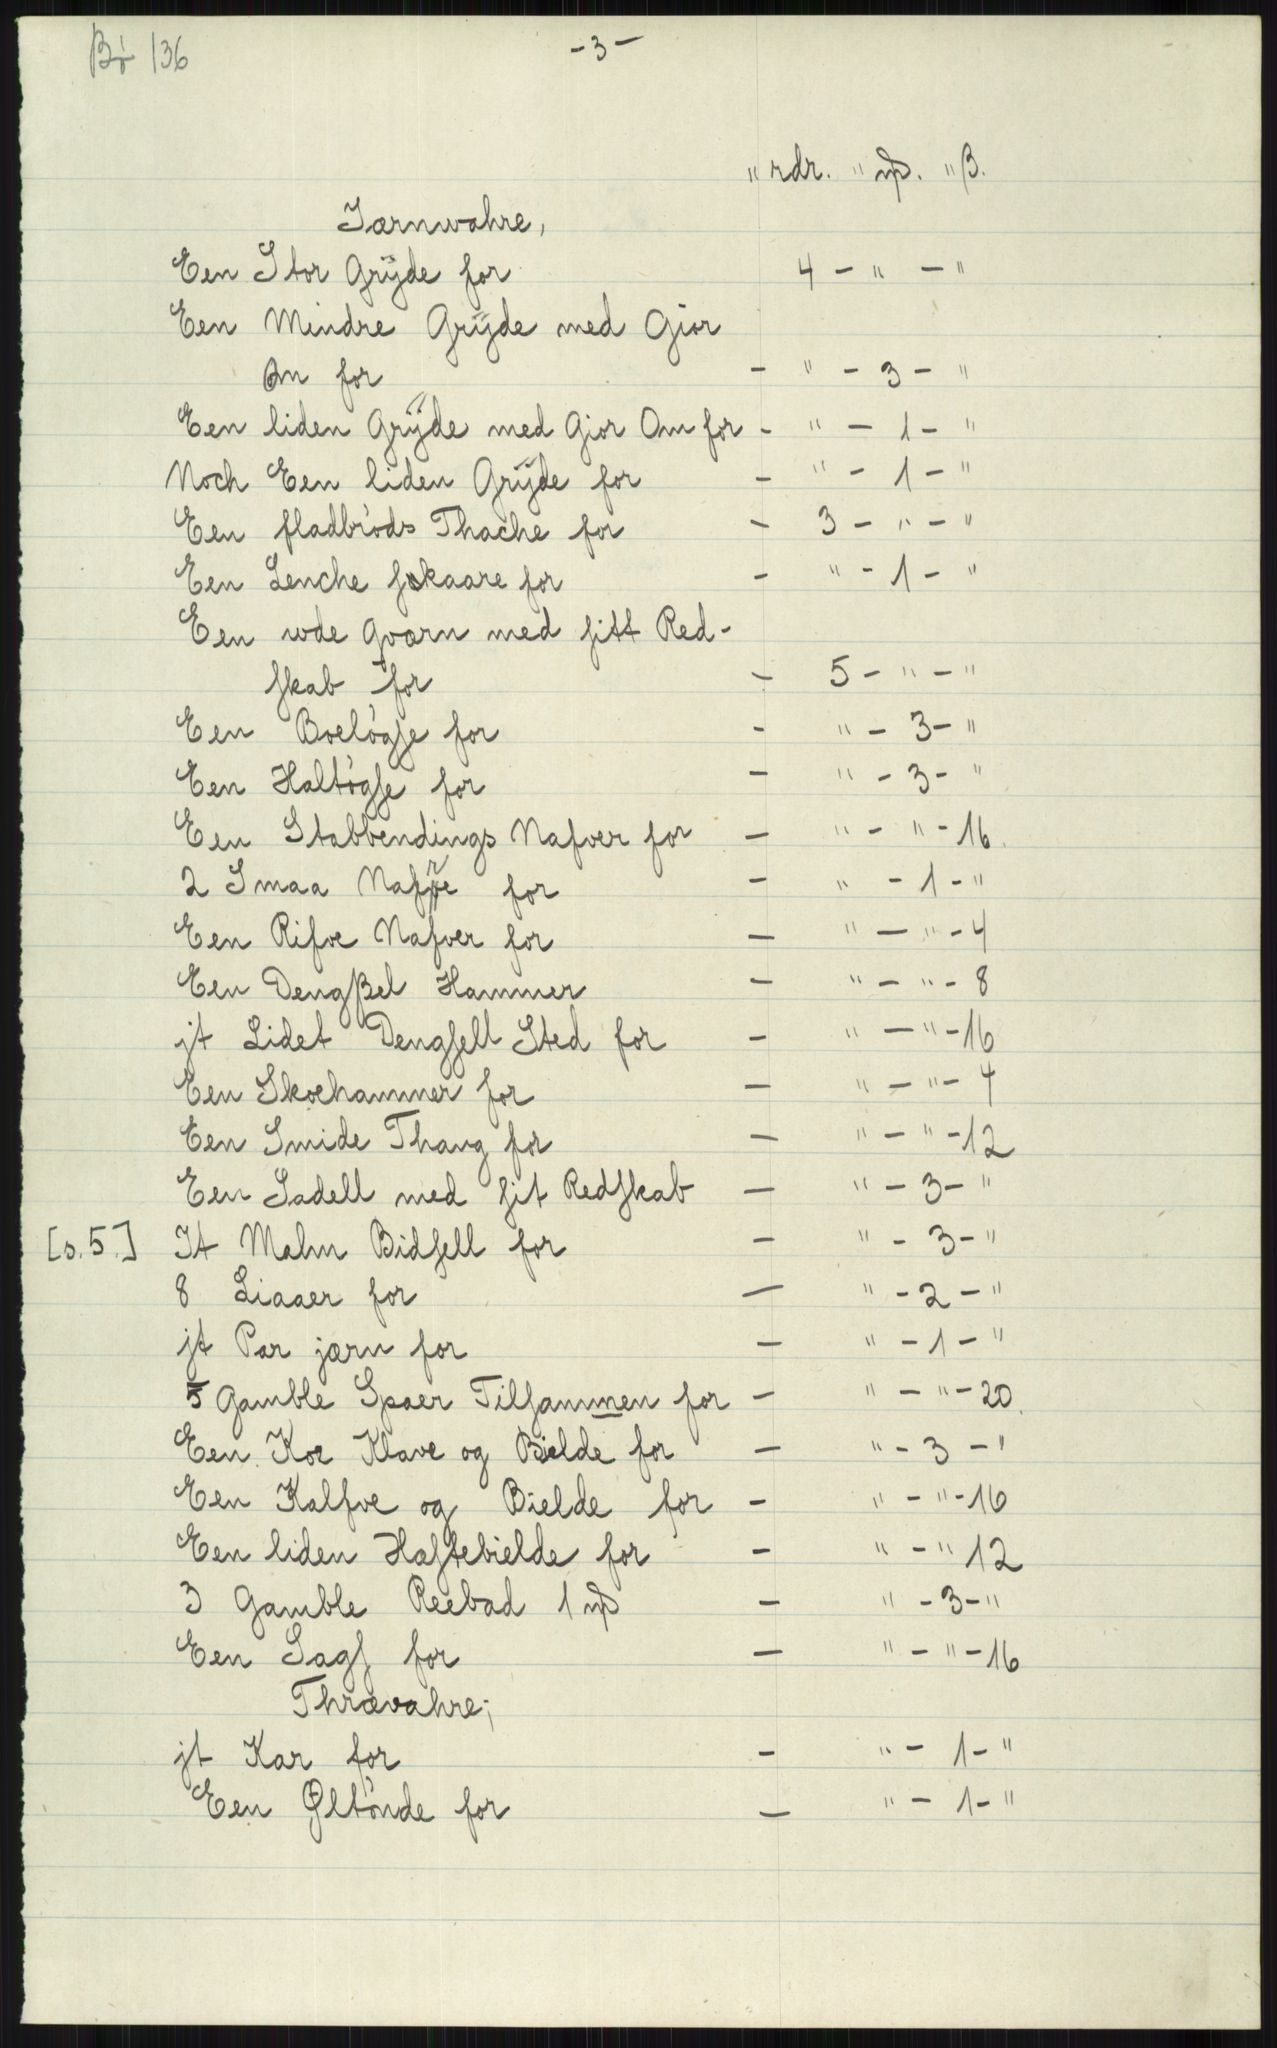 Bö 136
- 3 -
" rdr. " mk. " ß.
Jærnvahre,
Een Stor Grÿde for 4 - " - "
Een Mindre Grÿde med Gior
Om for - " - 3 - "
Een liden Grÿde med Gior Om for - " - 1 - "
Noch Een liden Grÿde for - " - 1 - "
Een fladbröds Thache for - 3 - " - "
Een Lenche skaare for - " - 1 - "
Een wde Qværn med sitt Red-
skab for - 5 - " - "
Een Boelögse for - " - 3 - "
Een Haltögse for - " - 3 - "
Een Stabbendings Nafver for - " - " - 16.
2 Smaa Nafre for - " - 1 - "
Een Rifve Nafver for - " - " - 4
Een Dengßel Hammer - " - " - 8
jt Lidet Dengsell Sted for - " - " - 16
Een Skoehammer for - " - " - 4
Een Smide Thang for - " - " - 12
Een Sadell med sit Redskab - " - 3 - "
[s. 5.] It Malm Bidsell for - " - 3 - "
8 Liaaer for - " - 2 - "
jt Par jærn for - " - 1 - "
5 Gamble Spaer Tilsammen for - " - " - 20.
Een Koe Klave og Bielde for - " - 3 - '
Een Kalfve og Bielde for - " - " - 16
Een liden Hæstebielde for - " - " 12
3 Gamble Reebad 1 mk - " - 3 - "
Een Sags for - " - " - 16
Thrævahre;
jt Kar for - " - 1 - "
Een Øltönde for - " - 1 - "